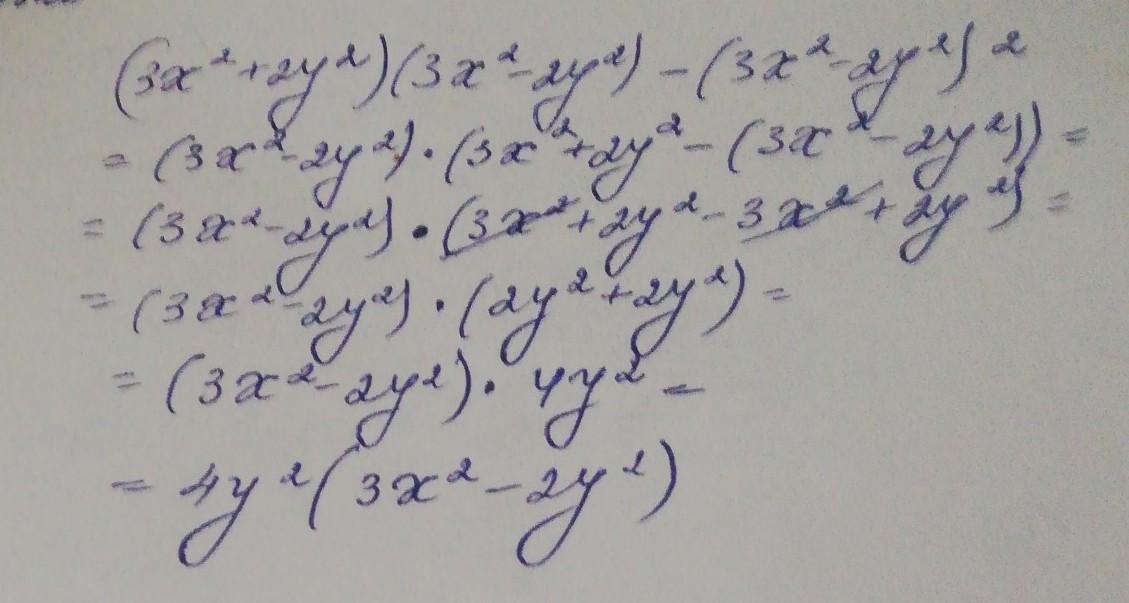 (3x²+2y²)(3x²-2y²)-(3x²-2y²)²
=(3x²-2y²)·(3x²+2y²-(3x²-2y²))=
=(3x²-2y²)·(3x²+2y²-3x²+2y²)=
=(3x²-2y²)·(2y²+2y²)=
=(3x²-2y²)·4y²=
=4y²(3x²-2y²)